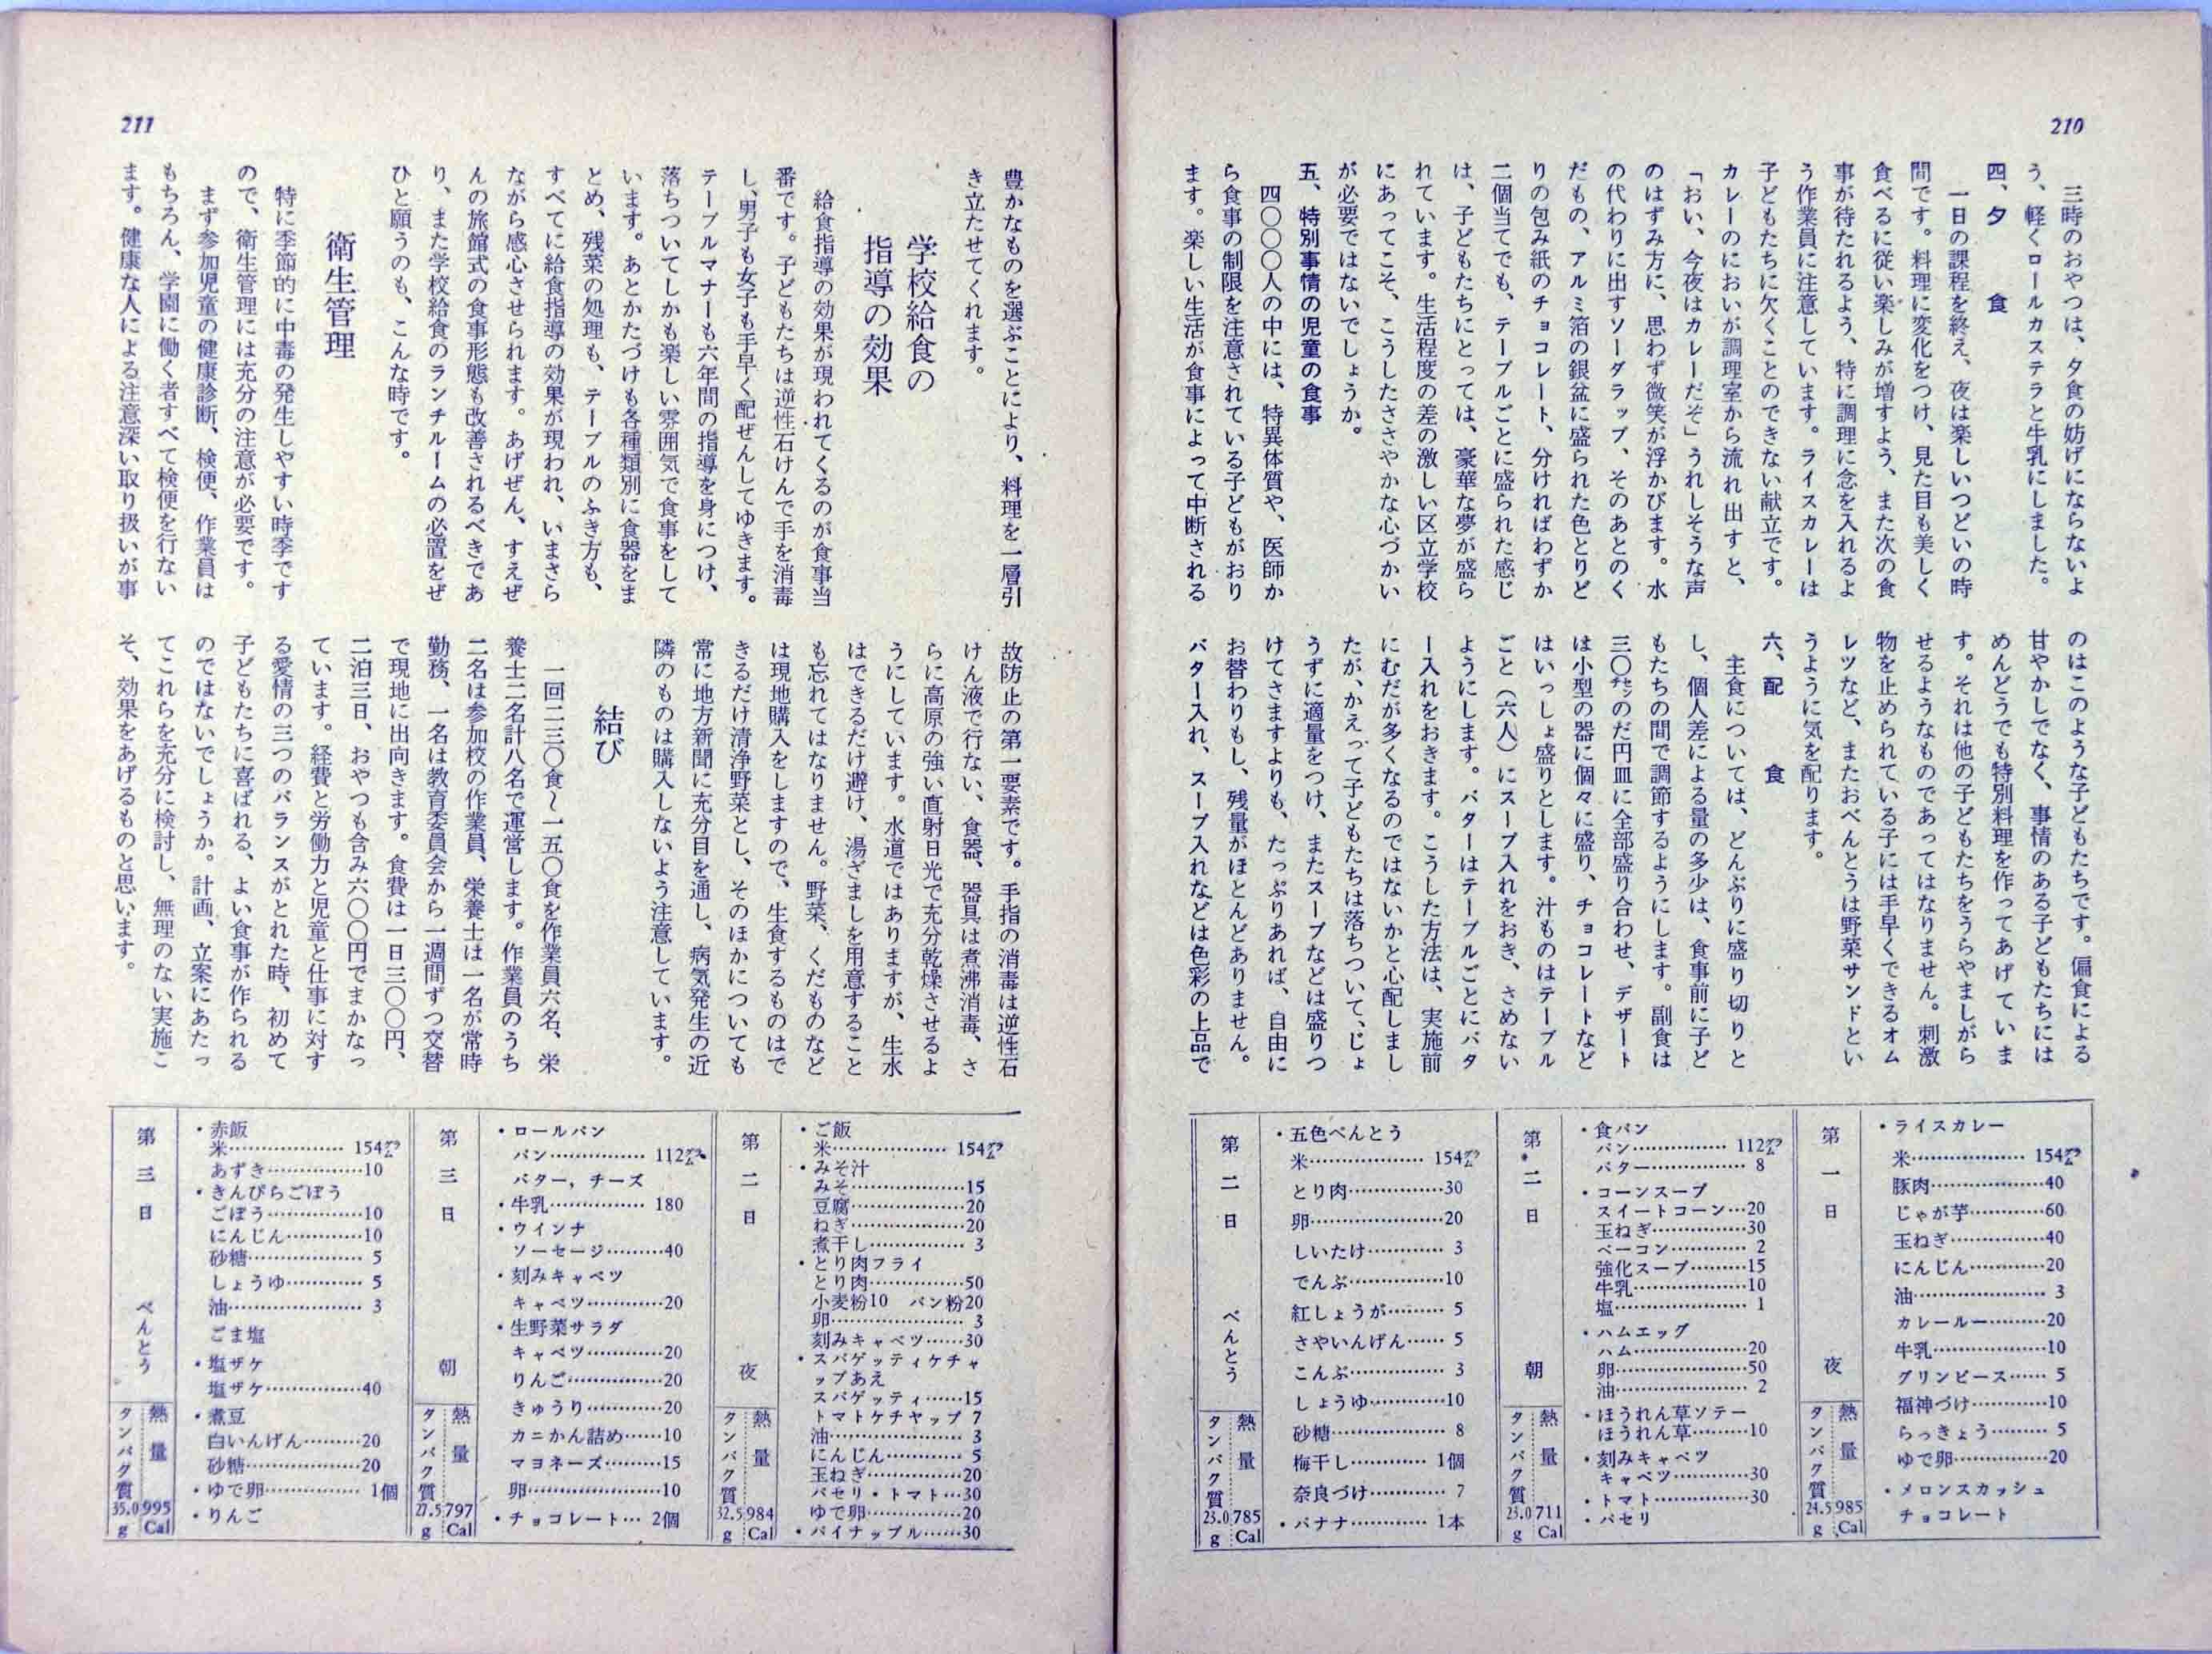 210
三時のおやつは、夕食の妨げにならないよ
う、軽くロールカステラと牛乳にしました。
四、夕　食
一日の課程を終え、夜は楽しいつどいの時
間です。料理に変化をつけ、見た目も美しく
食べるに従い楽しみが増すよう、また次の食
事が待たれるよう、特に調理に念を入れるよ
う作業員に注意しています。ライスカレーは
子どもたちに欠くことのできない献立です。
カレーのにおいが調理室から流れ出すと、
「おい、今夜はカレーだぞ」うれしそうな声
のはずみ方に、思わず微笑が浮かびます。水
の代わりに出すソーダラップ、そのあとのく
だもの、アルミ箔の銀盆に盛られた色とりど
りの包み紙のチョコレート、分ければわずか
二個当てでも、テーブルごとに盛られた感じ
は、子どもたちにとっては、豪華な夢が盛ら
れています。生活程度の差の激しい区立学校
にあってこそ、こうしたささやかな心づかい
が必要ではないでしょうか。
五、特別事情の児童の食事
四〇〇〇人の中には、特異体質や、医師か
ら食事の制限を注意されている子どもがおり
ます。楽しい生活が食事によって中断される
のはこのような子どもたちです。偏食による
甘やかしでなく、事情のある子どもたちには
めんどうでも特別料理を作ってあげていま
す。それは他の子どもたちをうらやましがら
せるようなものであってはなりません。刺激
物を止められている子には手早くできるオム
レツなど、またおべんとうは野菜サンドとい
うように気を配ります。
六、配　食
主食については、どんぶりに盛り切りと
し、個人差による量の多少は、食事前に子ど
もたちの間で調節するようにします。副食は
三〇㌢のだ円皿に全部盛り合わせ、デザート
は小型の器に個々に盛り、チョコレートなど
はいっしょ盛りとします。汁ものはテーブル
ごと（六人）にスープ入れをおき、さめない
ようにします。バターはテーブルごとにバタ
ー入れをおきます。こうした方法は、実施前
にむだが多くなるのではないかと心配しまし
たが、かえって子どもたちは落ちついて、じょ
うずに適量をつけ、またスープなどは盛りつ
けてさますよりも、たっぷりあれば、自由に
お替わりもし、残量がほとんどありません。
バター入れ、スープ入れなどは色彩の上品で
第一日　夜
・ライスカレー
米………154㌘
豚肉………40
じゃが芋………60
玉ねぎ………40
にんじん………20
油………3
カレールー………20
牛乳………10
グリンピース……5
福神づけ………10
らっきょう………5
ゆで卵………20
・メロンスカッシュ
チョコレート
熱量 985 Cal
タンパク質 24.5 g
第二日　朝
・食パン
パン………112㌘
バター………8
・コーンスープ
スイートコーン…20
玉ねぎ………30
ベーコン………2
強化スープ………15
牛乳………10
塩………1
・ハムエッグ
ハム………20
卵………50
油………2
・ほうれん草ソテー
ほうれん草………10
・刻みキャベツ
キャベツ………30
・トマト………30
・パセリ
熱量 711 Cal
タンパク質 23.0 g
第二日　べんとう
・五色べんとう
米………154㌘
とり肉………30
卵………20
しいたけ………3
でんぶ………10
紅しょうが………5
さやいんげん……5
こんぶ………3
しょうゆ………10
砂糖………8
梅干し………1個
奈良づけ………7
・バナナ………1本
熱量 785 Cal
タンパク質 23.0 g
211
豊かなものを選ぶことにより、料理を一層引
き立たせてくれます。
学校給食の
指導の効果
給食指導の効果が現われてくるのが食事当
番です。子どもたちは逆性石けんで手を消毒
し、男子も女子も手早く配ぜんしてゆきます。
テーブルマナーも六年間の指導を身につけ、
落ちついてしかも楽しい雰囲気で食事をして
います。あとかたづけも各種類別に食器をま
とめ、残菜の処理も、テーブルのふき方も、
すべてに給食指導の効果が現われ、いまさら
ながら感心させられます。あげぜん、すえぜ
んの旅館式の食事形態も改善されるべきであ
り、また学校給食のランチルームの必置をぜ
ひと願うのも、こんな時です。
衛生管理
特に季節的に中毒の発生しやすい時季です
ので、衛生管理には充分の注意が必要です。
まず参加児童の健康診断、検便、作業員は
もちろん、学園に働く者すべて検便を行ない
ます。健康な人による注意深い取り扱いが事
故防止の第一要素です。手指の消毒は逆性石
けん液で行ない、食器、器具は煮沸消毒、さ
らに高原の強い直射日光で充分乾燥させるよ
うにしています。水道ではありますが、生水
はできるだけ避け、湯ざましを用意すること
も忘れてはなりません。野菜、くだものなど
は現地購入をしますので、生食するものはで
きるだけ清浄野菜とし、そのほかについても
常に地方新聞に充分目を通し、病気発生の近
隣のものは購入しないよう注意しています。
結び
一回二三〇食～一五〇食を作業員六名、栄
養士二名計八名で運営します。作業員のうち
二名は参加校の作業員、栄養士は一名が常時
勤務、一名は教育委員会から一週間ずつ交替
で現地に出向きます。食費は一日三〇〇円、
二泊三日、おやつも含み六〇〇円でまかなっ
ています。経費と労働力と児童と仕事に対す
る愛情の三つのバランスがとれた時、初めて
子どもたちに喜ばれる、よい食事が作られる
のではないでしょうか。計画、立案にあたっ
てこれらを充分に検討し、無理のない実施こ
そ、効果をあげるものと思います。
第二日　夜
・ご飯
米………154㌘
・みそ汁
みそ………15
豆腐………20
ねぎ………20
煮干し………3
・とり肉フライ
とり肉………50
小麦粉10　パン粉20
卵………3
刻みキャベツ……30
・スパゲッティケチャ
ップあえ
スパゲッティ……15
トマトケチャップ 7
油………3
にんじん………5
玉ねぎ………20
パセリ・トマト…30
ゆで卵………20
・パイナップル……30
熱量 984 Cal
タンパク質 32.5 g
第三日　朝
・ロールパン
パン………112㌘
バター，チーズ
・牛乳………180
・ウインナ
ソーセージ………40
・刻みキャベツ
キャベツ………20
・生野菜サラダ
キャベツ………20
りんご………20
きゅうり………20
カニかん詰め……10
マヨネーズ………15
卵………10
・チョコレート…2個
熱量 797 Cal
タンパク質 27.5 g
第三日　べんとう
・赤飯
米………154㌘
あずき………10
・きんぴらごぼう
ごぼう………10
にんじん………10
砂糖………5
しょうゆ………5
油………3
ごま塩
・塩ザケ
塩ザケ………40
・煮豆
白いんげん………20
砂糖………20
・ゆで卵………1個
・りんご
熱量 995 Cal
タンパク質 35.0 g